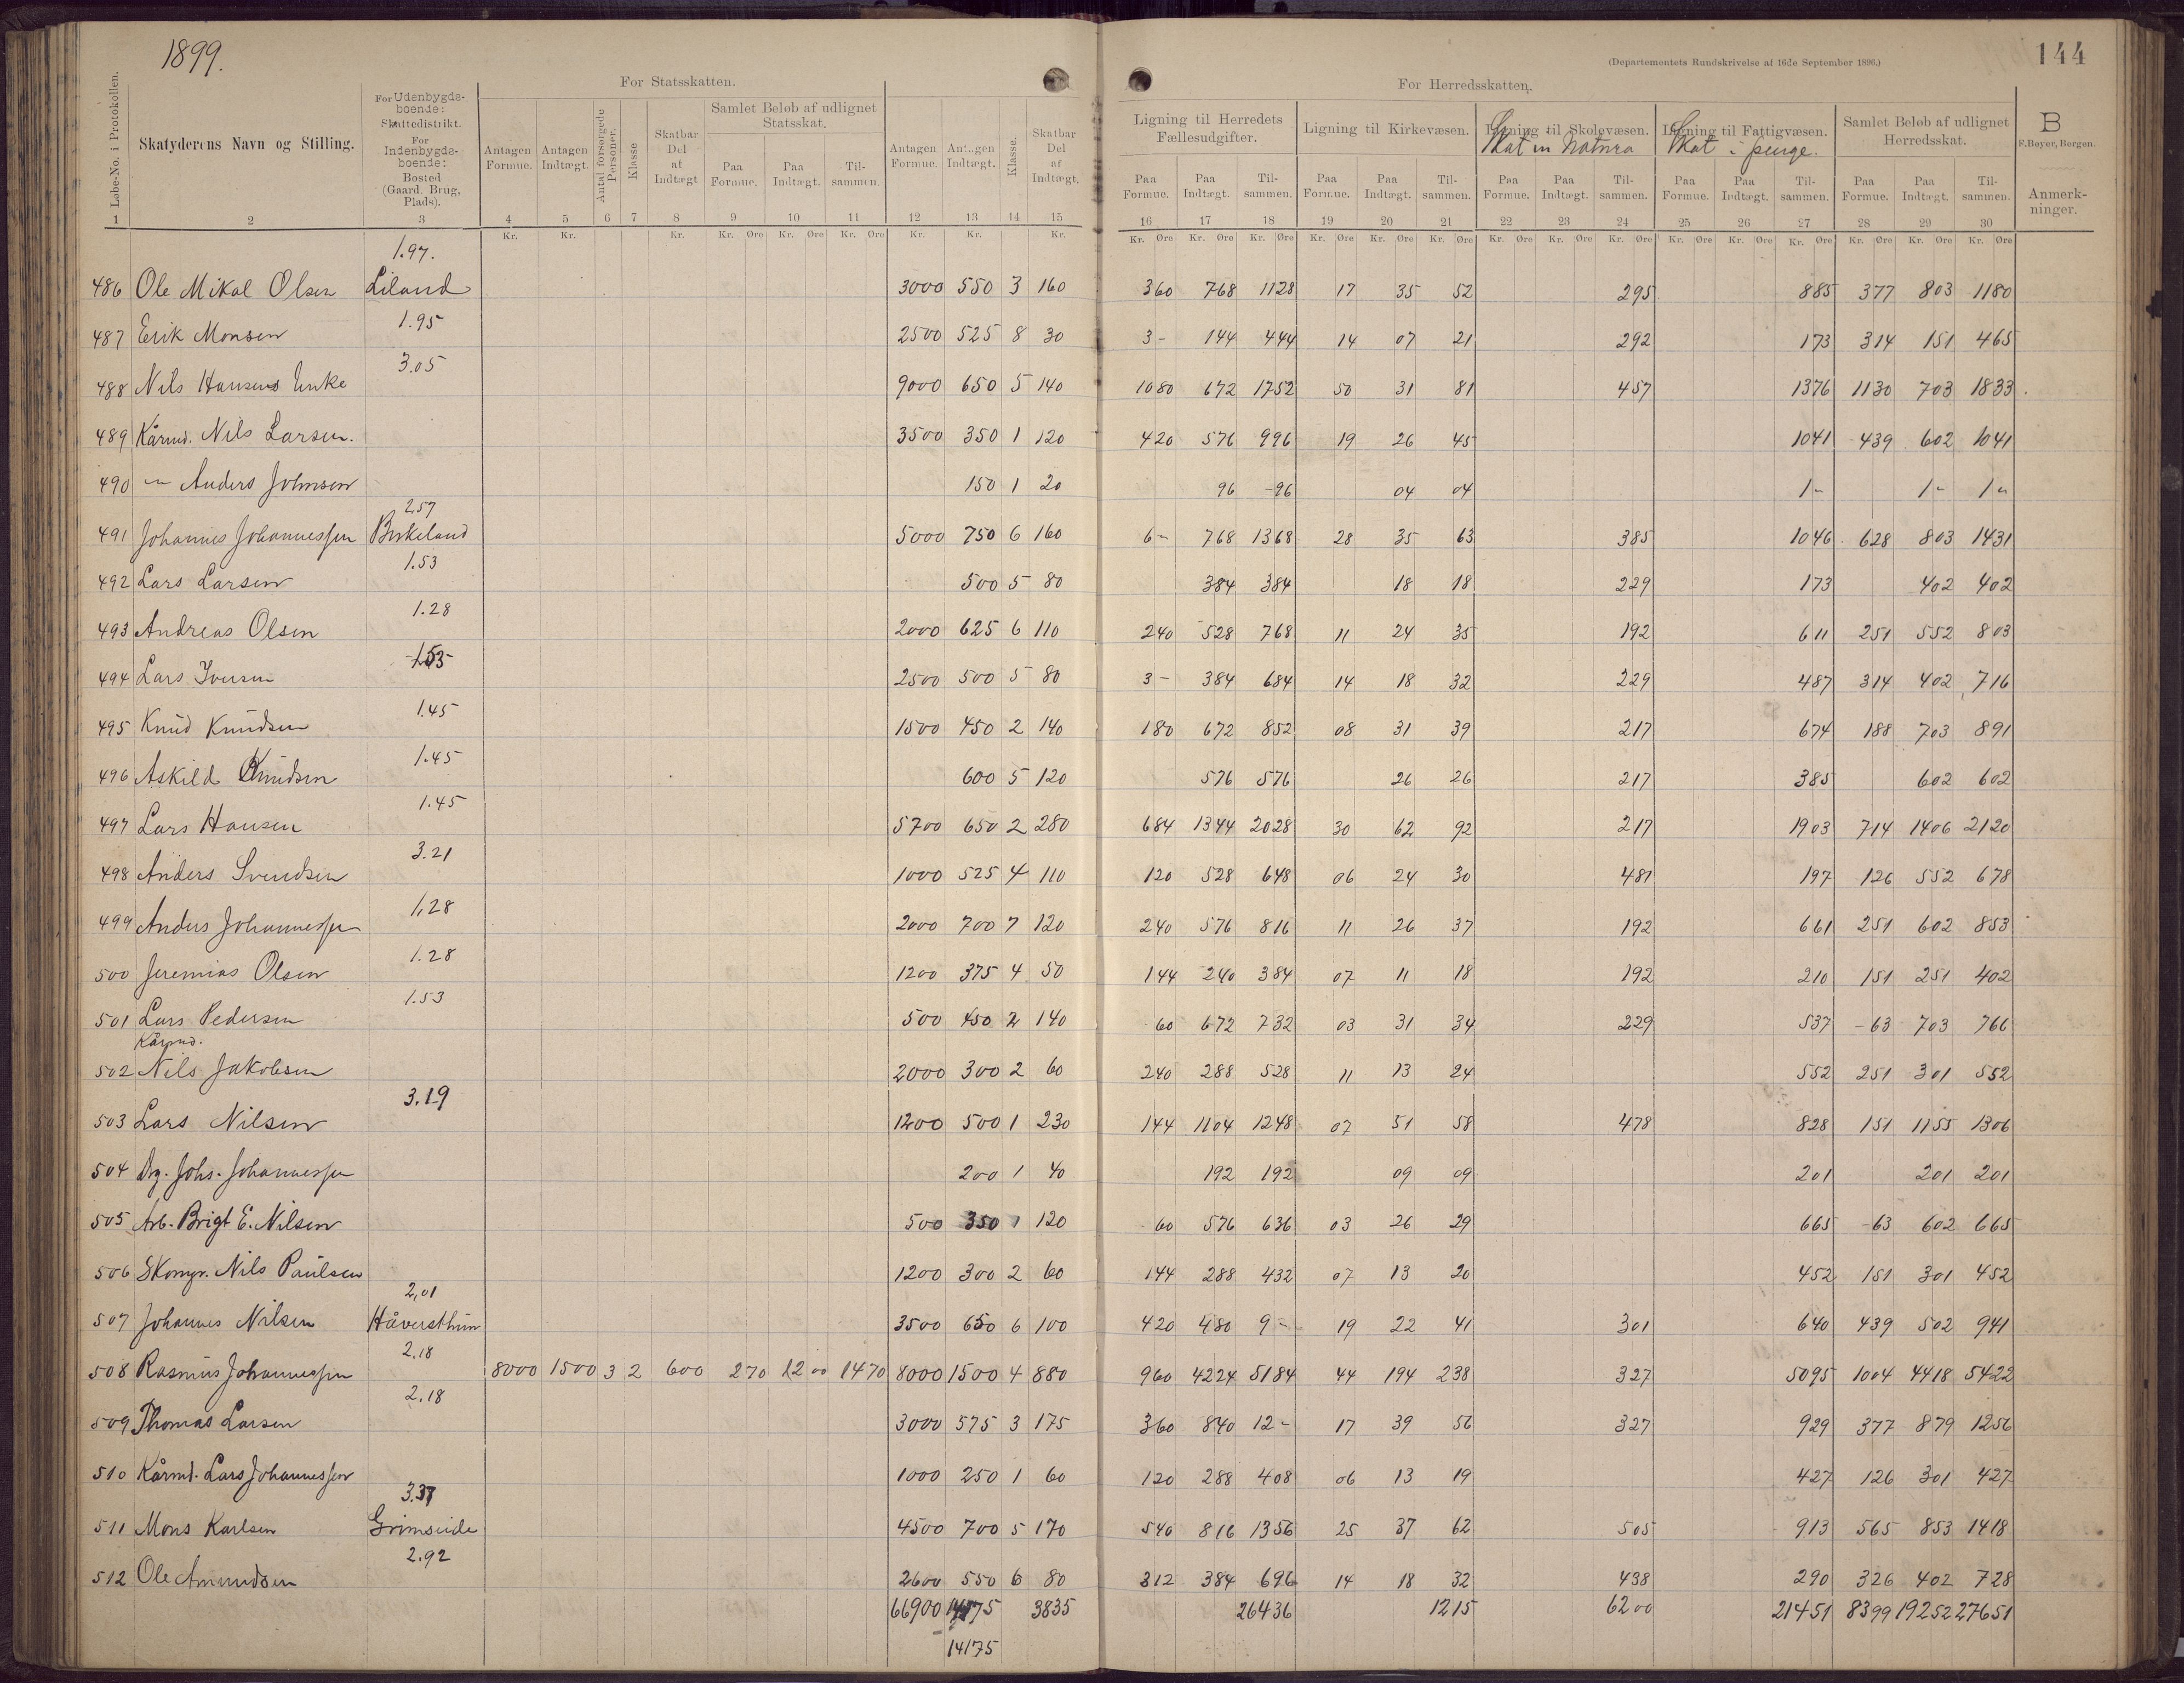 1899.
144
(Departementets Rundskrivelse af 16de September 1896.)
For Statsskatten.
For Herredsskatten.
Løbe-No. i Protokollen.
Skatyderens Navn og Stilling.
For Udenbygds-boende: Skattedistrikt. For Indenbygds-boende: Bosted (Gaard. Brug, Plads).
Antagen Formue.
Antagen Indtægt.
Antal forsørgede Personer.
Klasse
Skatbar Del at Indtægt
Samlet Beløb af udlignet Statsskat.
Paa Formue.
Paa Indtægt.
Til-sammen.
Antagen Formue.
Antagen Indtægt.
Klasse.
Skatbar Del af Indtægt.
Ligning til Herredets Fællesudgifter.
Ligning til Kirkevæsen.
Ligning til Skolevæsen.
Skat in Natura
Ligning til Fattigvæsen.
Skat i penge.
Samlet Beløb af udlignet Herredsskat.
B
F. Beyer, Bergen.
Anmerk-ninger.
Paa Formue. Paa Indtægt. Til-sammen. Paa Formue. Paa Indtægt. Til-sammen. Paa Formue. Paa Indtægt. Til-sammen. Paa Formue. Paa Indtægt. Til-sammen. Paa Formue. Paa Indtægt. Til-sammen.
1 2 3 4 5 6 7 8 9 10 11 12 13 14 15 16 17 18 19 20 21 22 23 24 25 26 27 28 29 30
Kr. Kr. Kr. Kr. Øre Kr. Øre Kr. Øre Kr. Kr. Kr. Kr. Øre Kr. Øre Kr. Øre Kr. Øre Kr. Øre Kr. Øre Kr. Øre Kr. Øre Kr. Øre Kr. Øre Kr. Øre Kr. Øre Kr. Øre Kr. Øre Kr. Øre
1.97.
486 Ole Mikal Olsen Liland 3000 550 3 160 360 768 1128 17 35 52 295 885 377 803 1180
1.95
487 Erik Monsen 2500 525 8 30 3- 144 444 14 07 21 292 173 314 151 465
3.05
488 Nils Hansens Enke 9000 650 5 140 1080 672 1752 50 31 81 457 1376 1130 703 1833
489 Kårmd. Nils Larsen. 3500 350 1 120 420 576 996 19 26 45 1041 439 602 1041
490 -"- Anders Johnsen 150 1 20 96 -96 04 04 1- 1- 1-
2,57
491 Johannes Johannessen Birkeland 5000 750 6 160 6- 768 1368 28 35 63 385 1046 628 803 1431
1.53
492 Lars Larsen 500 5 80 384 384 18 18 229 173 402 402
1.28
493 Andreas Olsen 2000 625 6 110 240 528 768 11 24 35 192 611 251 552 803
1.53
494 Lars Iversen 2500 500 5 80 3- 384 684 14 18 32 229 487 314 402 716
1.45
495 Knud Knudsen 1500 450 2 140 180 672 852 08 31 39 217 674 188 703 891
1.45
496 Askild Knudsen 600 5 120 576 576 26 26 217 385 602 602
1.45
497 Lars Hansen 5700 650 2 280 684 1344 2028 30 62 92 217 1903 714 1406 2120
3.21
498 Anders Svendsen 1000 525 4 110 120 528 648 06 24 30 481 197 126 552 678
1,28
499 Anders Johannessen 2000 700 7 120 240 576 816 11 26 37 192 661 251 602 853
1.28
500 Jeremias Olsen 1200 375 4 50 144 240 384 07 11 18 192 210 151 251 402
1.53
501 Lars Pedersen 500 450 2 140 60 672 732 03 31 34 229 537 -63 703 766
Kårmd.
502 Nils Jakobsen 2000 300 2 60 240 288 528 11 13 24 552 251 301 552
3.19
503 Lars Nilsen 1200 500 1 230 144 1104 1248 07 51 58 478 828 151 1155 1306
504 Drg. Johs. Johannessen 200 1 40 192 192 09 09 201 201 201
505 Arb. Brigt E. Nilsen 500 350 1 120 60 576 636 03 26 29 665 -63 602 665
506 Skomgr. Nils Paulsen 1200 300 2 60 144 288 432 07 13 20 452 151 301 452
2,01
507 Johannes Nilsen Håversthun 3500 650 6 100 420 480 9- 19 22 41 301 640 439 502 941
2,18
508 Rasmus Johannessen 8000 1500 3 2 600 270 12 00 1470 8000 1500 4 880 960 4224 5184 44 194 238 327 5095 1004 4418 5422
2.18
509 Thomas Larsen 3000 575 3 175 360 840 12- 17 39 56 327 929 377 879 1256
510 Kårmd. Lars Johannessen 1000 250 1 60 120 288 408 06 13 19 427 126 301 427
3.37
511 Mons Karlsen Grimseide 4500 700 5 170 540 816 1356 25 37 62 505 913 565 853 1418
2.92
512 Ole Amundsen 2600 550 6 80 312 384 696 14 18 32 438 290 326 402 728
66900 14175 3835 26436 1215 6200 21451 8399 19252 27651
14175